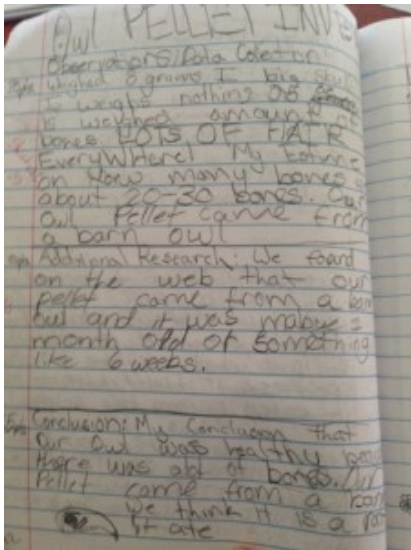 Owl PELLET INV
Observations/Data Colection
weighed 8 grams I big skull
It weighs nothing
is weighed amount of
bones LOTS OF HAIR
EveryWhere! My Estime
on how many bones
about 20-30 bones. Our
Owl Pellet came from
a barn owl
Additional Research: We found
on the web that our
pellet came from a barn
owl and it was mabye
month old of something
like 6 weeks.
Conclusion: My Conclusion that
our Owl was healthy
there was alot of bones. Our
Pellet came from a barn
we think it is a
it ate